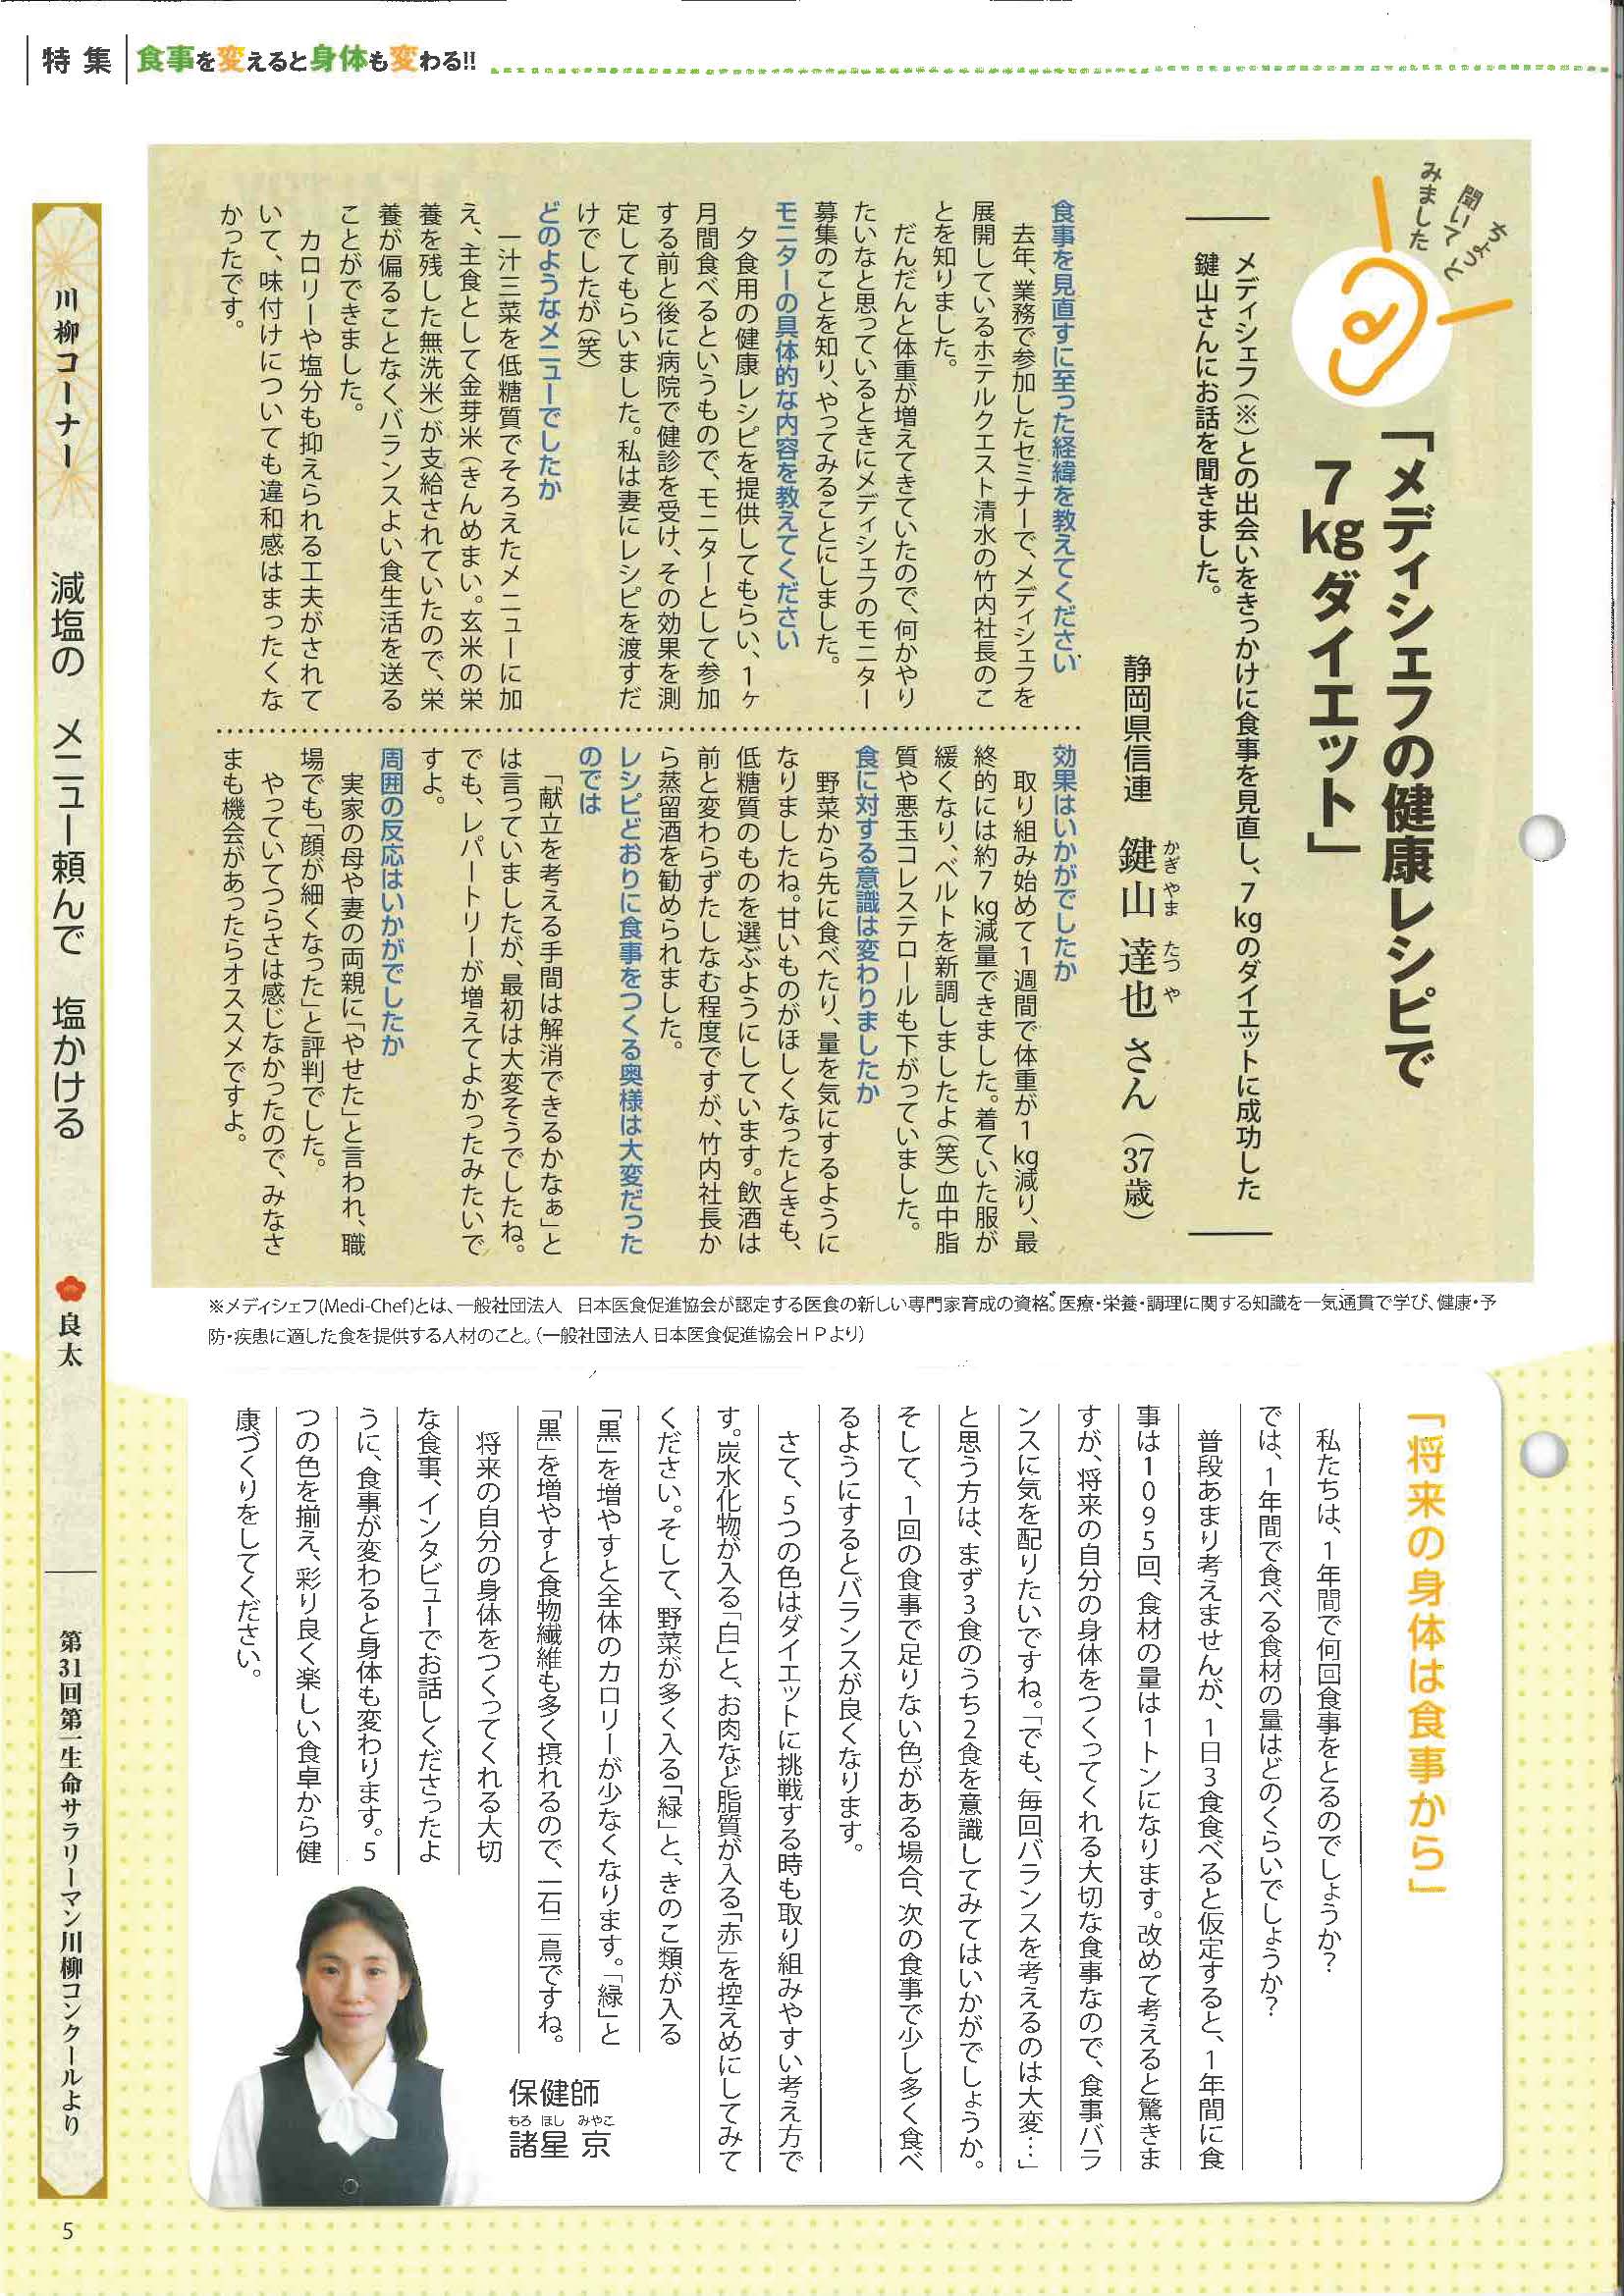 特集 食事を変えると身体も変わる!!
ちょっと
聞いて
みました
「メディシェフの健康レシピで
7kgダイエット」
メディシェフ(※)との出会いをきっかけに食事を見直し、7kgのダイエットに成功した
鍵山さんにお話を聞きました。
静岡県信連 鍵山 達也さん(37歳)
かぎ やま たつ や
食事を見直すに至った経緯を教えてください
去年、業務で参加したセミナーで、メディシェフを
展開しているホテルクエスト清水の竹内社長のこ
とを知りました。
だんだんと体重が増えてきていたので、何かやり
たいなと思っているときにメディシェフのモニター
募集のことを知り、やってみることにしました。
モニターの具体的な内容を教えてください
夕食用の健康レシピを提供してもらい、1ヶ
月間食べるというもので、モニターとして参加
する前と後に病院で健診を受け、その効果を測
定してもらいました。私は妻にレシピを渡すだ
けでしたが(笑)
どのようなメニューでしたか
一汁三菜を低糖質でそろえたメニューに加
え、主食として金芽米(きんめまい。玄米の栄
養を残した無洗米)が支給されていたので、栄
養が偏ることなくバランスよい食生活を送る
ことができました。
カロリーや塩分も抑えられる工夫がされて
いて、味付けについても違和感はまったくな
かったです。
効果はいかがでしたか
取り組み始めて1週間で体重が1kg減り、最
終的には約7kg減量できました。着ていた服が
緩くなり、ベルトを新調しましたよ(笑)血中脂
質や悪玉コレステロールも下がっていました。
食に対する意識は変わりましたか
野菜から先に食べたり、量を気にするように
なりましたね。甘いものがほしくなったときも、
低糖質のものを選ぶようにしています。飲酒は
前と変わらずたしなむ程度ですが、竹内社長か
ら蒸留酒を勧められました。
レシピどおりに食事をつくる奥様は大変だった
のでは
「献立を考える手間は解消できるかなぁ」と
は言っていましたが、最初は大変そうでしたね。
でも、レパートリーが増えてよかったみたいで
すよ。
周囲の反応はいかがでしたか
実家の母や妻の両親に「やせた」と言われ、職
場でも「顔が細くなった」と評判でした。
やっていてつらさは感じなかったので、みなさ
まも機会があったらオススメですよ。
※メディシェフ(Medi-Chef)とは、一般社団法人 日本医食促進協会が認定する医食の新しい専門家育成の資格。医療・栄養・調理に関する知識を一気通貫で学び、健康・予
防・疾患に適した食を提供する人材のこと。(一般社団法人 日本医食促進協会HPより)
「将来の身体は食事から」
私たちは、1年間で何回食事をとるのでしょうか?
では、1年間で食べる食材の量はどのくらいでしょうか?
普段あまり考えませんが、1日3食食べると仮定すると、1年間に食
事は1095回、食材の量は1トンになります。改めて考えると驚きま
すが、将来の自分の身体をつくってくれる大切な食事なので、食事バラ
ンスに気を配りたいですね。「でも、毎回バランスを考えるのは大変…」
と思う方は、まず3食のうち2食を意識してみてはいかがでしょうか。
そして、1回の食事で足りない色がある場合、次の食事で少し多く食べ
るようにするとバランスが良くなります。
さて、5つの色はダイエットに挑戦する時も取り組みやすい考え方で
す。炭水化物が入る「白」と、お肉など脂質が入る「赤」を控えめにしてみて
ください。そして、野菜が多く入る「緑」と、きのこ類が入る
「黒」を増やすと全体のカロリーが少なくなります。「緑」と
「黒」を増やすと食物繊維も多く摂れるので、一石二鳥ですね。
将来の自分の身体をつくってくれる大切
な食事、インタビューでお話しくださったよ
うに、食事が変わると身体も変わります。5
つの色を揃え、彩り良く楽しい食卓から健
康づくりをしてください。
保健師
もろ ほし みやこ
諸星 京
川柳コーナー 減塩の メニュー頼んで 塩かける 良太 第31回第一生命サラリーマン川柳コンクールより
5